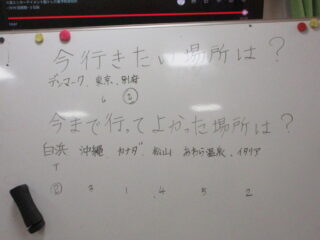 今行きたい場所は?
デンマーク、東京、別府
6 ②
今まで行ってよかった場所は?
白浜 沖縄 カナダ 松山 あわら温泉、イタリア
② 3 1 4 5 2